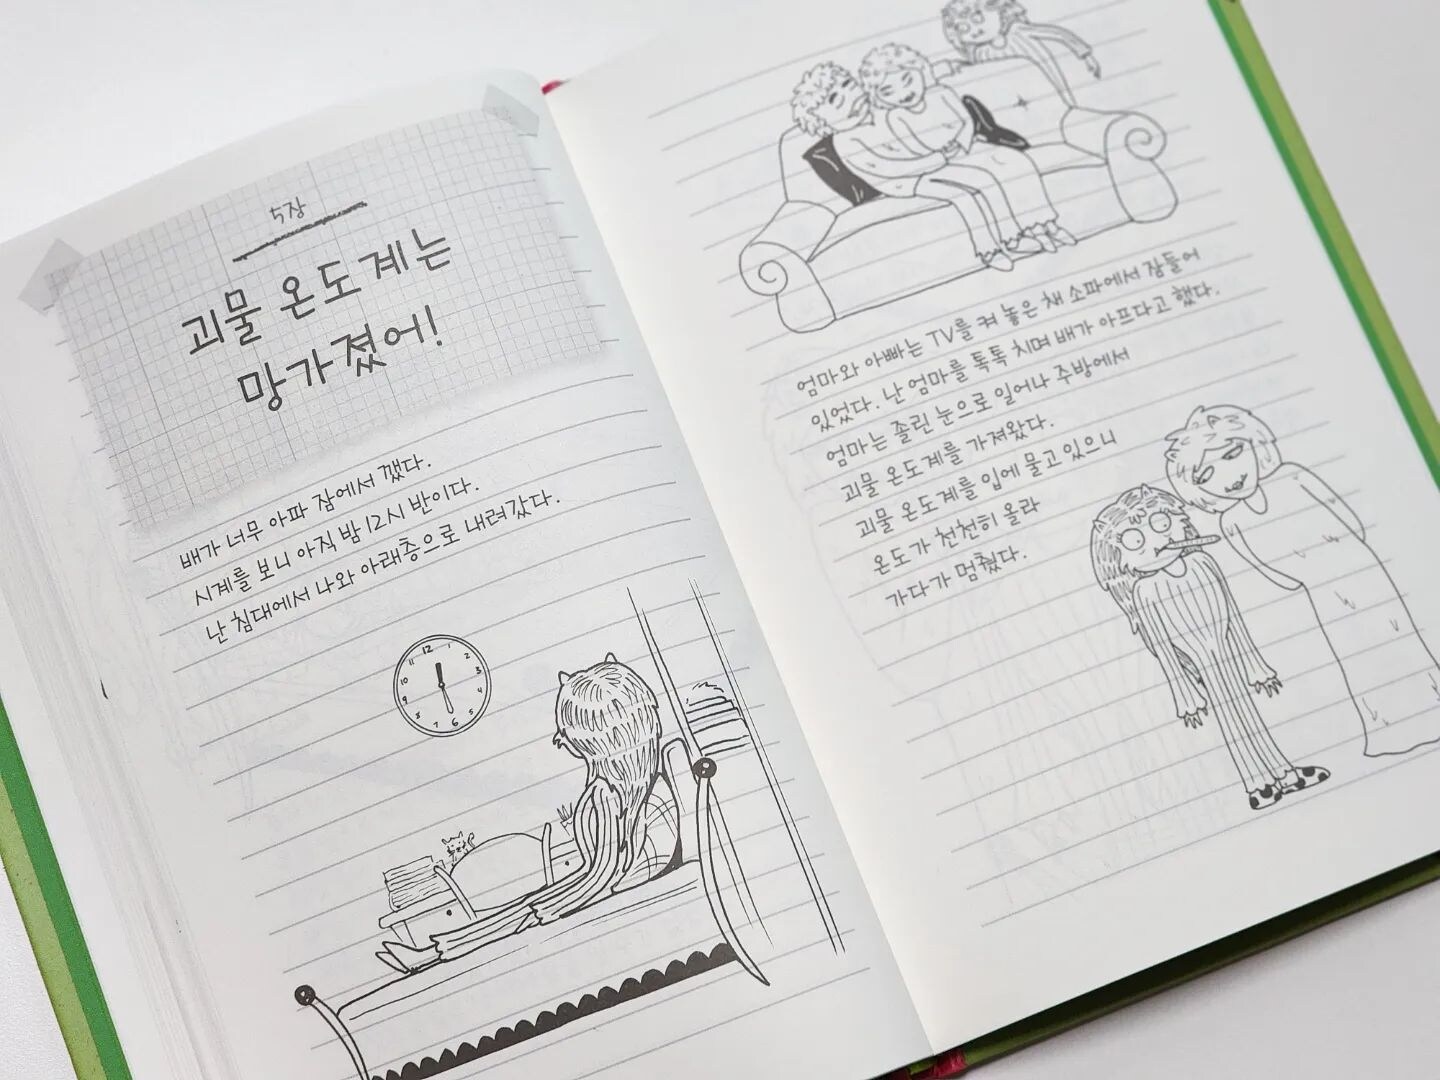 5장
괴물 온도계는
망가졌어!
배가 너무 아파 잠에서 깼다.
시계를 보니 아직 밤 12시 반이다.
난 침대에서 나와 아래층으로 내려갔다.
12
1
2
3
4
5
6
7
8
9
10
11
엄마와 아빠는 TV를 켜 놓은 채 소파에서 잠들어
있었다. 난 엄마를 톡톡 치며 배가 아프다고 했다.
엄마는 졸린 눈으로 일어나 주방에서
괴물 온도계를 가져왔다.
괴물 온도계를 입에 물고 있으니
온도가 천천히 올라
가다가 멈췄다.